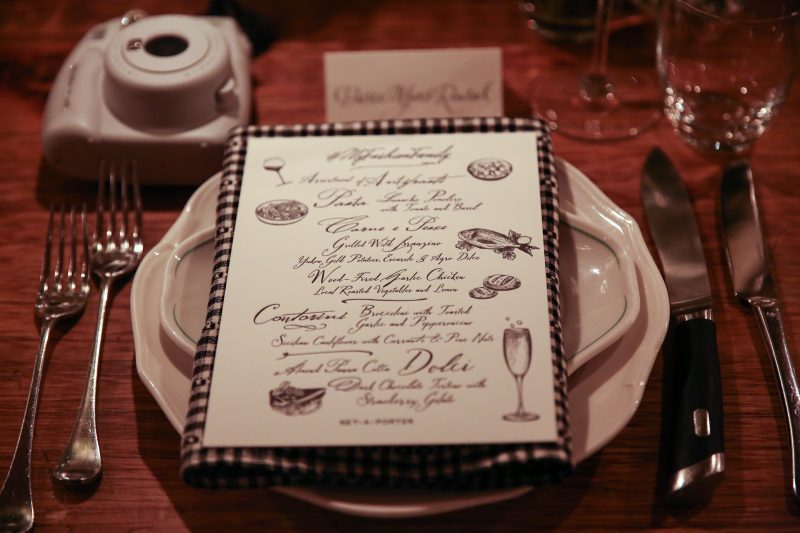 #MyFashionFamily
Assortment of Antipasti
Pasta Lumache Pomodoro
with Tomato and Basil
Carne e Pesce
Grilled Wild Branzino
Yukon Gold Potatoes, Escarole & Agro Dolce
Wood-Fired Garlic Chicken
Local Roasted Vegetables and Lemon
Contorini Broccolini with Toasted
Garlic and Pepperoncino
Sicilian Cauliflower with Currants & Pine Nuts
Almond Panna Cotta Dolci
Dark Chocolate Torta with
Strawberry Gelato
NET-A-PORTER
NET-A-PORTER